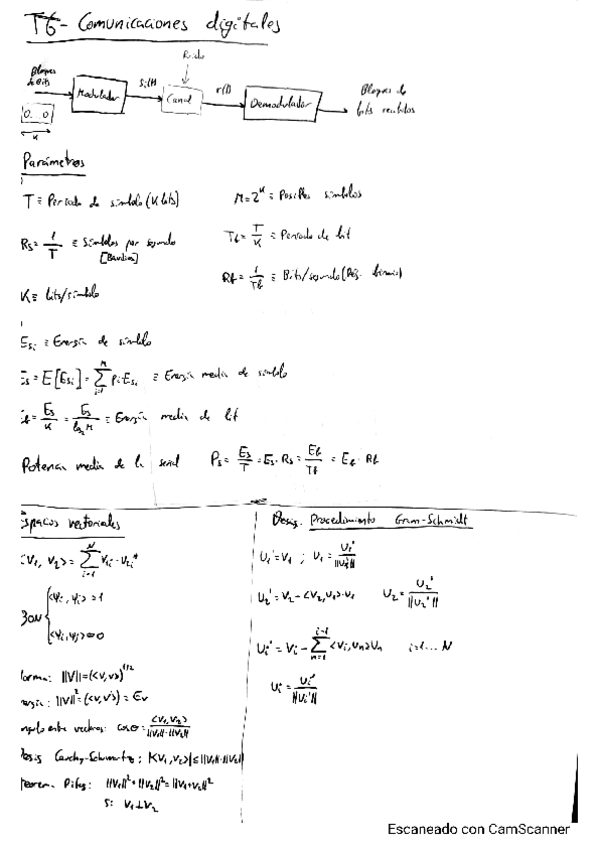 T6 - Comunicaciones digitales
Bloques de bits
Ruido
Modulador
Si(t)
Canal
r(t)
Demodulador
Bloques de bits recibidos
0...0
K
Parámetros
T ≡ Periodo de símbolo (K bits)
M = 2^K ≡ Posibles símbolos
Rs = 1/T ≡ Símbolos por segundo [Baudios]
Tb = T/K ≡ Periodo de bit
K ≡ bits/símbolo
Rb = 1/Tb ≡ Bits/segundo (Rég. binario)
Esi ≡ Energía de símbolo
Es = E[Esi] = Σ_{i=1}^{M} pi·Esi ≡ Energía media de símbolo
= Es/K = Es/log2 M ≡ Energía media de bit
Potencia media de la señal Ps = Es/T = Es·Rs = Eb/Tb = Eb·Rb
Espacios vectoriales
<V1, V2> = Σ_{i=1}^{N} V1i·V2i*
BON { <φi, φi> = 1
<φi, φj> = 0
Norma: ||V|| = (<V,V>)^{1/2}
||V||² = (<V,V>) = Ev
entre vectores: cosθ = <V1,V2>/(||V1||·||V2||)
Cauchy-Schwartz: |<V1,V2>| ≤ ||V1||·||V2||
Teorema Pitág: ||V1||² + ||V2||² = ||V1+V2||²
Si V1⊥V2
Procedimiento Gram-Schmidt
U1' = V1 ; U1 = U1'/||U1'||
U2' = V2 - <V2,U1>·U1 U2 = U2'/||U2'||
Ui' = Vi - Σ_{n=1}^{i-1} <Vi,Un>Un i=1...N
Ui = Ui'/||Ui'||
Escaneado con CamScanner